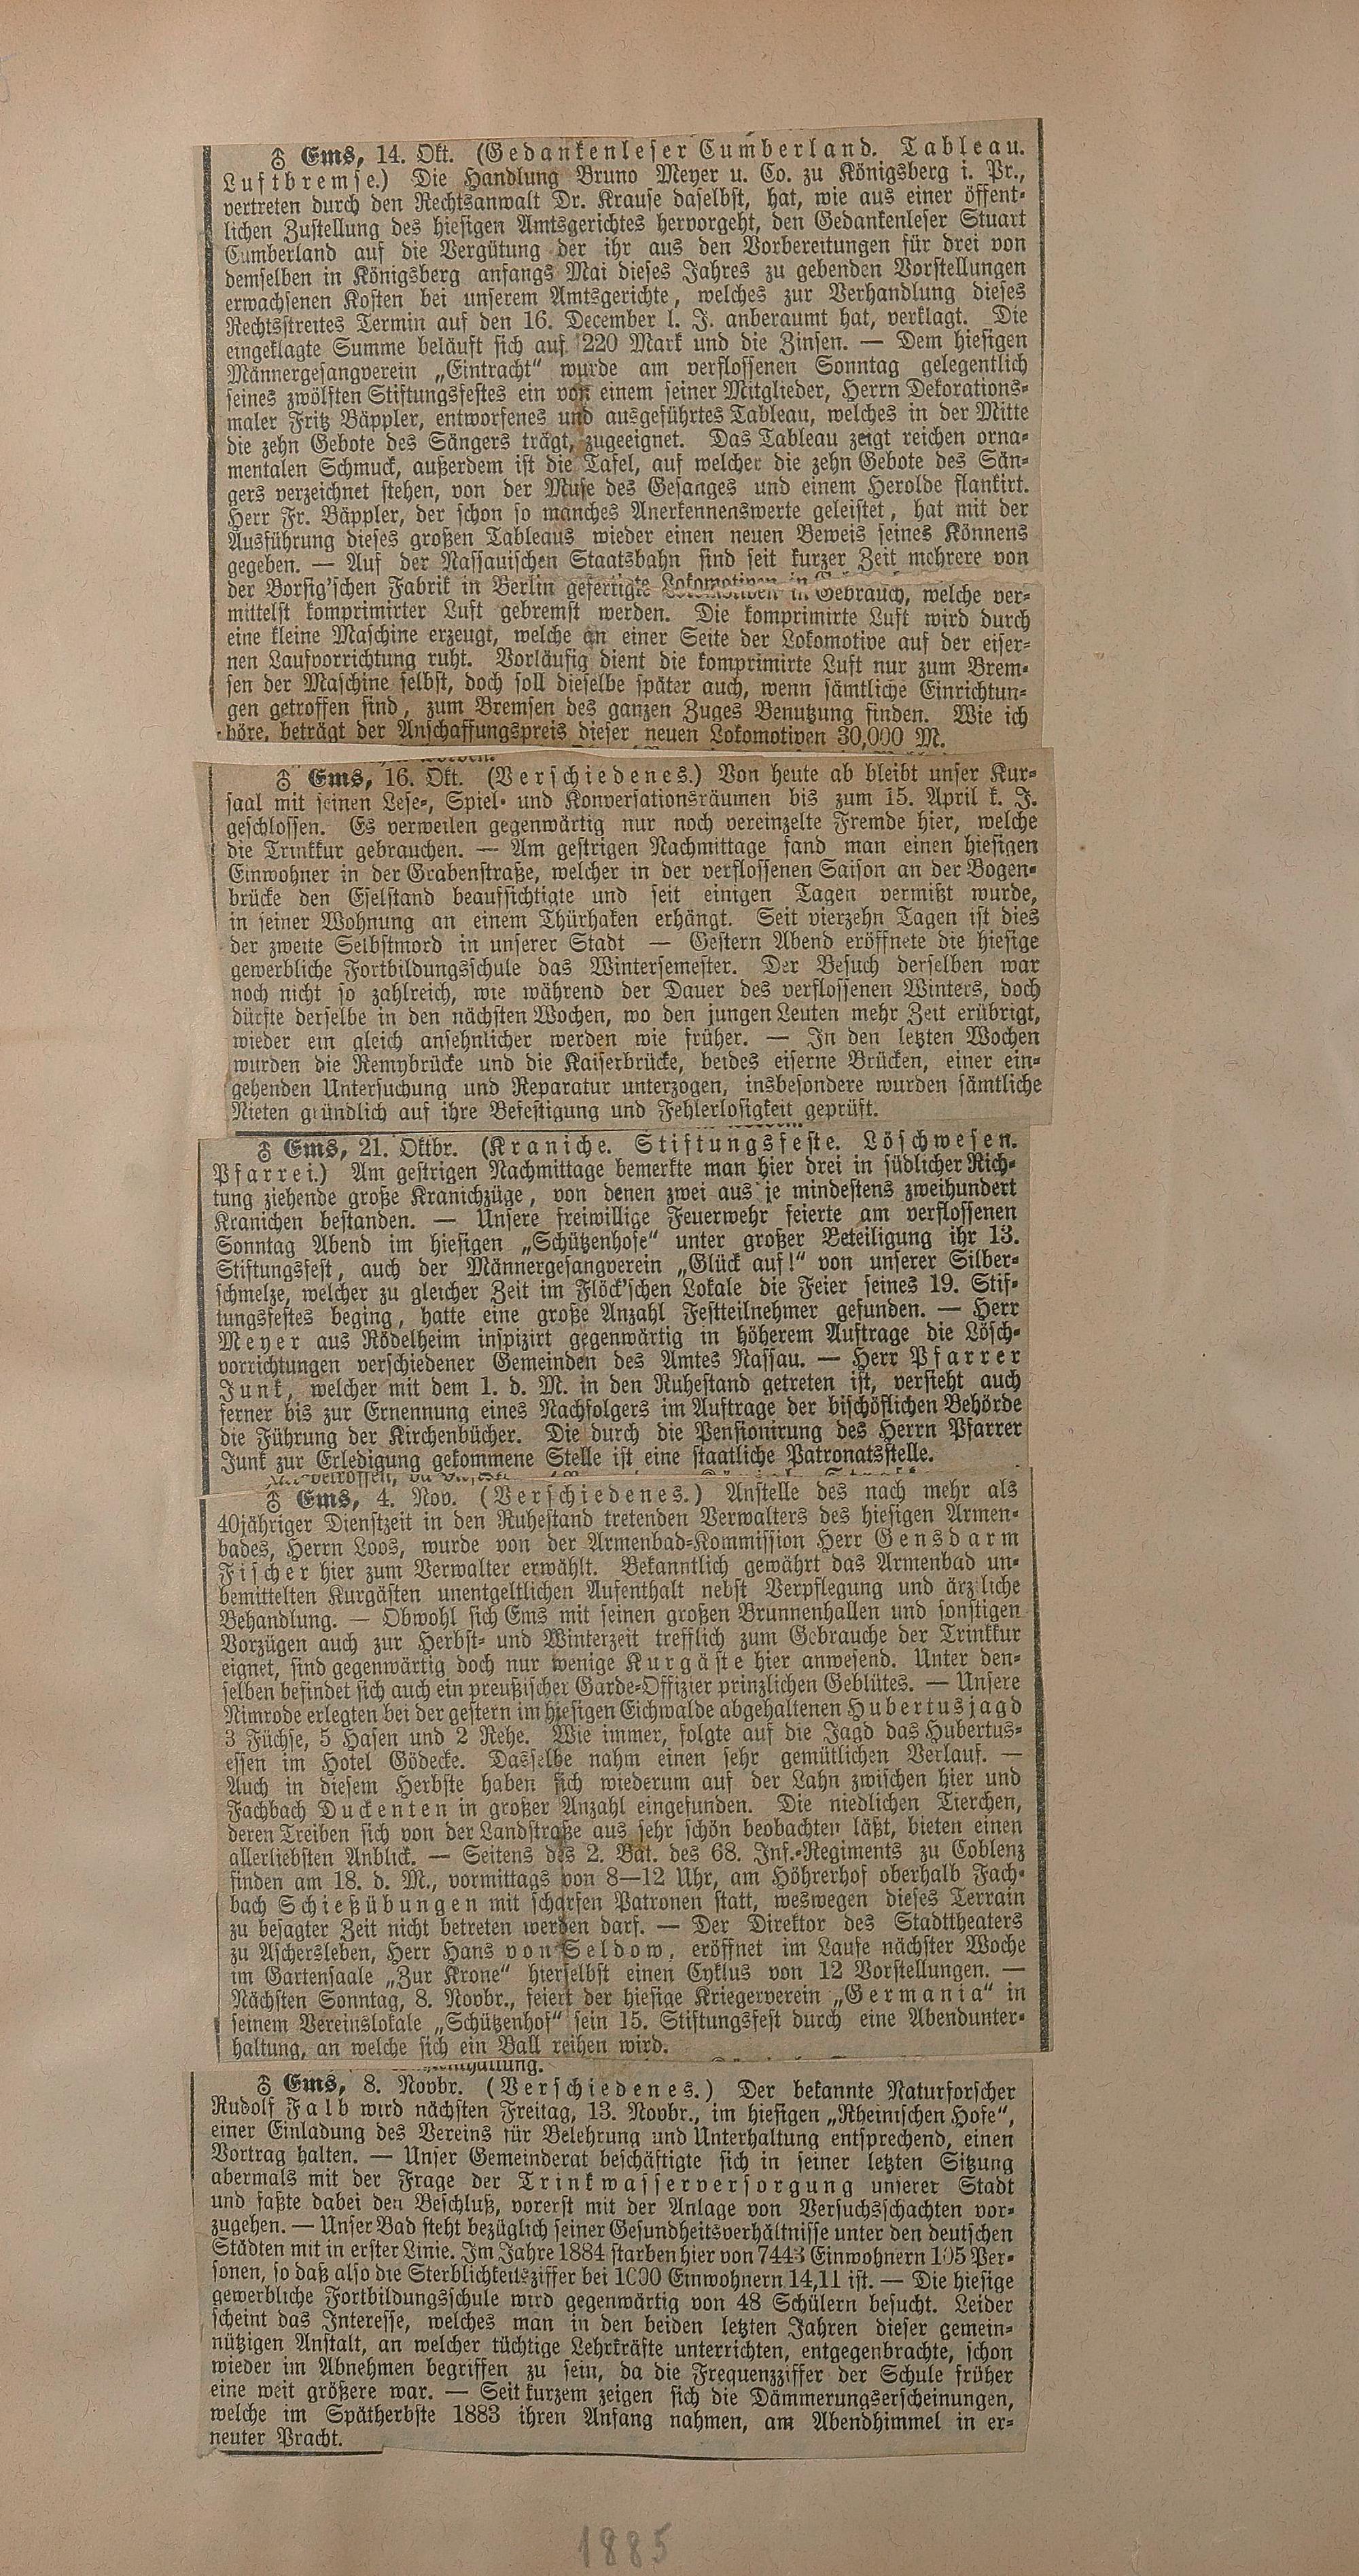 ♁ Ems, 14. Okt. (Gedankenleser Cumberland. Tableau.
Luftbremse.) Die Handlung Bruno Meyer u. Co. zu Königsberg i. Pr.,
vertreten durch den Rechtsanwalt Dr. Krause daselbst, hat, wie aus einer öffent-
lichen Zustellung des hiesigen Amtsgerichtes hervorgeht, den Gedankenleser Stuart
Cumberland auf die Vergütung der ihr aus den Vorbereitungen für drei von
demselben in Königsberg anfangs Mai dieses Jahres zu gebenden Vorstellungen
erwachsenen Kosten bei unserem Amtsgerichte, welches zur Verhandlung dieses
Rechtsstreites Termin auf den 16. December l. J. anberaumt hat, verklagt. Die
eingeklagte Summe beläuft sich auf 220 Mark und die Zinsen. — Dem hiesigen
Männergesangverein „Eintracht“ wurde am verflossenen Sonntag gelegentlich
seines zwölften Stiftungsfestes ein von einem seiner Mitglieder, Herrn Dekorations-
maler Fritz Bäppler, entworfenes und ausgeführtes Tableau, welches in der Mitte
die zehn Gebote des Sängers trägt, zugeeignet. Das Tableau zeigt reichen orna-
mentalen Schmuck, außerdem ist die Tafel, auf welcher die zehn Gebote des Sän-
gers verzeichnet stehen, von der Muse des Gesanges und einem Herolde flankirt.
Herr Fr. Bäppler, der schon so manches Anerkennenswerte geleistet, hat mit der
Ausführung dieses großen Tableaus wieder einen neuen Beweis seines Könnens
gegeben. — Auf der Nassauischen Staatsbahn sind seit kurzer Zeit mehrere von
der Borsig'schen Fabrik in Berlin gefertigte Lokomotiven in Gebrauch, welche ver-
mittelst komprimirter Luft gebremst werden. Die komprimirte Luft wird durch
eine kleine Maschine erzeugt, welche an einer Seite der Lokomotive auf der eiser-
nen Laufvorrichtung ruht. Vorläufig dient die komprimirte Luft nur zum Brem-
sen der Maschine selbst, doch soll dieselbe später auch, wenn sämtliche Einrichtun-
gen getroffen sind, zum Bremsen des ganzen Zuges Benutzung finden. Wie ich
höre, beträgt der Anschaffungspreis dieser neuen Lokomotiven 30,000 M.
♁ Ems, 16. Okt. (Verschiedenes.) Von heute ab bleibt unser Kur-
saal mit seinen Lese-, Spiel- und Konversationsräumen bis zum 15. April k. J.
geschlossen. Es verweilen gegenwärtig nur noch vereinzelte Fremde hier, welche
die Trinkkur gebrauchen. — Am gestrigen Nachmittage fand man einen hiesigen
Einwohner in der Grabenstraße, welcher in der verflossenen Saison an der Bogen-
brücke den Eselstand beaufsichtigte und seit einigen Tagen vermißt wurde,
in seiner Wohnung an einem Thürhaken erhängt. Seit vierzehn Tagen ist dies
der zweite Selbstmord in unserer Stadt — Gestern Abend eröffnete die hiesige
gewerbliche Fortbildungsschule das Wintersemester. Der Besuch derselben war
noch nicht so zahlreich, wie während der Dauer des verflossenen Winters, doch
dürfte derselbe in den nächsten Wochen, wo den jungen Leuten mehr Zeit erübrigt,
wieder ein gleich ansehnlicher werden wie früher. — In den letzten Wochen
wurden die Remybrücke und die Kaiserbrücke, beides eiserne Brücken, einer ein-
gehenden Untersuchung und Reparatur unterzogen, insbesondere wurden sämtliche
Nieten gründlich auf ihre Befestigung und Fehlerlosigkeit geprüft.
♁ Ems, 21. Oktbr. (Kraniche. Stiftungsfeste. Löschwesen.
Pfarrei.) Am gestrigen Nachmittage bemerkte man hier drei in südlicher Rich-
tung ziehende große Kranichzüge, von denen zwei aus je mindestens zweihundert
Kranichen bestanden. — Unsere freiwillige Feuerwehr feierte am verflossenen
Sonntag Abend im hiesigen „Schützenhofe“ unter großer Beteiligung ihr 13.
Stiftungsfest, auch der Männergesangverein „Glück auf!“ von unserer Silber-
schmelze, welcher zu gleicher Zeit im Flöck'schen Lokale die Feier seines 19. Stif-
tungsfestes beging, hatte eine große Anzahl Festteilnehmer gefunden. — Herr
Meyer aus Rödelheim inspizirt gegenwärtig in höherem Auftrage die Lösch-
vorrichtungen verschiedener Gemeinden des Amtes Nassau. — Herr Pfarrer
Junk, welcher mit dem 1. d. M. in den Ruhestand getreten ist, versieht auch
ferner bis zur Ernennung eines Nachfolgers im Auftrage der bischöflichen Behörde
die Führung der Kirchenbücher. Die durch die Pensionirung des Herrn Pfarrer
Junk zur Erledigung gekommene Stelle ist eine staatliche Patronatsstelle.
♁ Ems, 4. Nov. (Verschiedenes.) Anstelle des nach mehr als
40jähriger Dienstzeit in den Ruhestand tretenden Verwalters des hiesigen Armen-
bades, Herrn Loos, wurde von der Armenbad-Kommission Herr Gensdarm
Fischer hier zum Verwalter erwählt. Bekanntlich gewährt das Armenbad un-
bemittelten Kurgästen unentgeltlichen Aufenthalt nebst Verpflegung und ärztliche
Behandlung. — Obwohl sich Ems mit seinen großen Brunnenhallen und sonstigen
Vorzügen auch zur Herbst- und Winterzeit trefflich zum Gebrauche der Trinkkur
eignet, sind gegenwärtig doch nur wenige Kurgäste hier anwesend. Unter den-
selben befindet sich auch ein preußischer Garde-Offizier prinzlichen Geblütes. — Unsere
Nimrode erlegten bei der gestern im hiesigen Eichwalde abgehaltenen Hubertusjagd
3 Füchse, 5 Hasen und 2 Rehe. Wie immer, folgte auf die Jagd das Hubertus-
essen im Hotel Gödecke. Dasselbe nahm einen sehr gemütlichen Verlauf. —
Auch in diesem Herbste haben sich wiederum auf der Lahn zwischen hier und
Fachbach Duckenten in großer Anzahl eingefunden. Die niedlichen Tierchen,
deren Treiben sich von der Landstraße aus sehr schön beobachten läßt, bieten einen
allerliebsten Anblick. — Seitens des 2. Bat. des 68. Inf.-Regiments zu Coblenz
finden am 18. d. M., vormittags von 8—12 Uhr, am Höhrerhof oberhalb Fach-
bach Schießübungen mit scharfen Patronen statt, weswegen dieses Terrain
zu besagter Zeit nicht betreten werden darf. — Der Direktor des Stadttheaters
zu Aschersleben, Herr Hans von Seldow, eröffnet im Laufe nächster Woche
im Gartensaale „Zur Krone“ hierselbst einen Cyklus von 12 Vorstellungen. —
Nächsten Sonntag, 8. Novbr., feiert der hiesige Kriegerverein „Germania“ in
seinem Vereinslokale „Schützenhof“ sein 15. Stiftungsfest durch eine Abendunter-
haltung, an welche sich ein Ball reihen wird.
♁ Ems, 8. Novbr. (Verschiedenes.) Der bekannte Naturforscher
Rudolf Falb wird nächsten Freitag, 13. Novbr., im hiesigen „Rheinischen Hofe“,
einer Einladung des Vereins für Belehrung und Unterhaltung entsprechend, einen
Vortrag halten. — Unser Gemeinderat beschäftigte sich in seiner letzten Sitzung
abermals mit der Frage der Trinkwasserversorgung unserer Stadt
und faßte dabei den Beschluß, vorerst mit der Anlage von Versuchsschachten vor-
zugehen. — Unser Bad steht bezüglich seiner Gesundheitsverhältnisse unter den deutschen
Städten mit in erster Linie. Im Jahre 1884 starben hier von 7443 Einwohnern 105 Per-
sonen, so daß also die Sterblichkeitsziffer bei 1000 Einwohnern 14,11 ist. — Die hiesige
gewerbliche Fortbildungsschule wird gegenwärtig von 48 Schülern besucht. Leider
scheint das Interesse, welches man in den beiden letzten Jahren dieser gemein-
nützigen Anstalt, an welcher tüchtige Lehrkräfte unterrichten, entgegenbrachte, schon
wieder im Abnehmen begriffen zu sein, da die Frequenzziffer der Schule früher
eine weit größere war. — Seit kurzem zeigen sich die Dämmerungserscheinungen,
welche im Spätherbste 1883 ihren Anfang nahmen, am Abendhimmel in er-
neuter Pracht.
1885